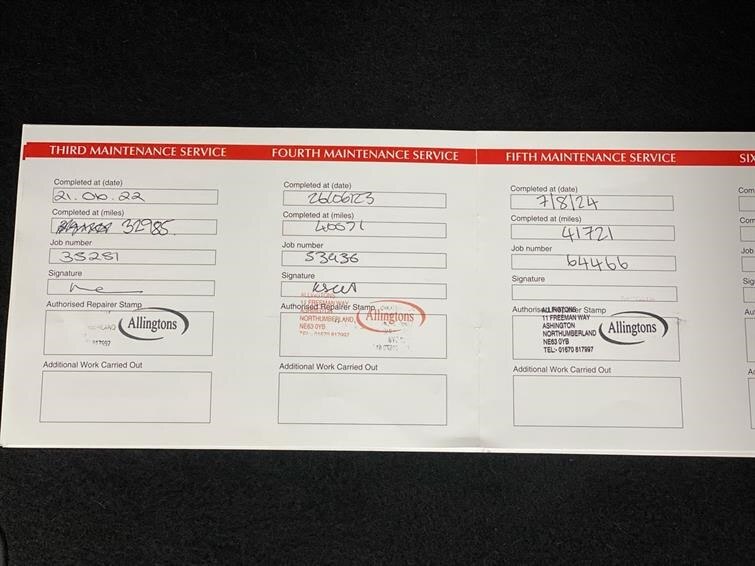 THIRD MAINTENANCE SERVICE
Completed at (date)
21.06.22
Completed at (miles)
32985
Job number
35251
Signature
Authorised Repairer Stamp
Allingtons
817997
Additional Work Carried Out
FOURTH MAINTENANCE SERVICE
Completed at (date)
26/06/23
Completed at (miles)
40571
Job number
53436
Signature
Authorised Repairer Stamp
ALLINGTONS
11 FREEMAN WAY
NORTHUMBERLAND,
NE63 0YB
TEL:- 01670 817997
Allingtons
Additional Work Carried Out
FIFTH MAINTENANCE SERVICE
Completed at (date)
7/8/24
Completed at (miles)
41721
Job number
64466
Signature
Authorised Repairer Stamp
ALLINGTONS
11 FREEMAN WAY
ASHINGTON
NORTHUMBERLAND
NE63 0YB
TEL:- 01670 817997
Allingtons
Additional Work Carried Out
SIX
Com
Com
Job
Sig
Au
A